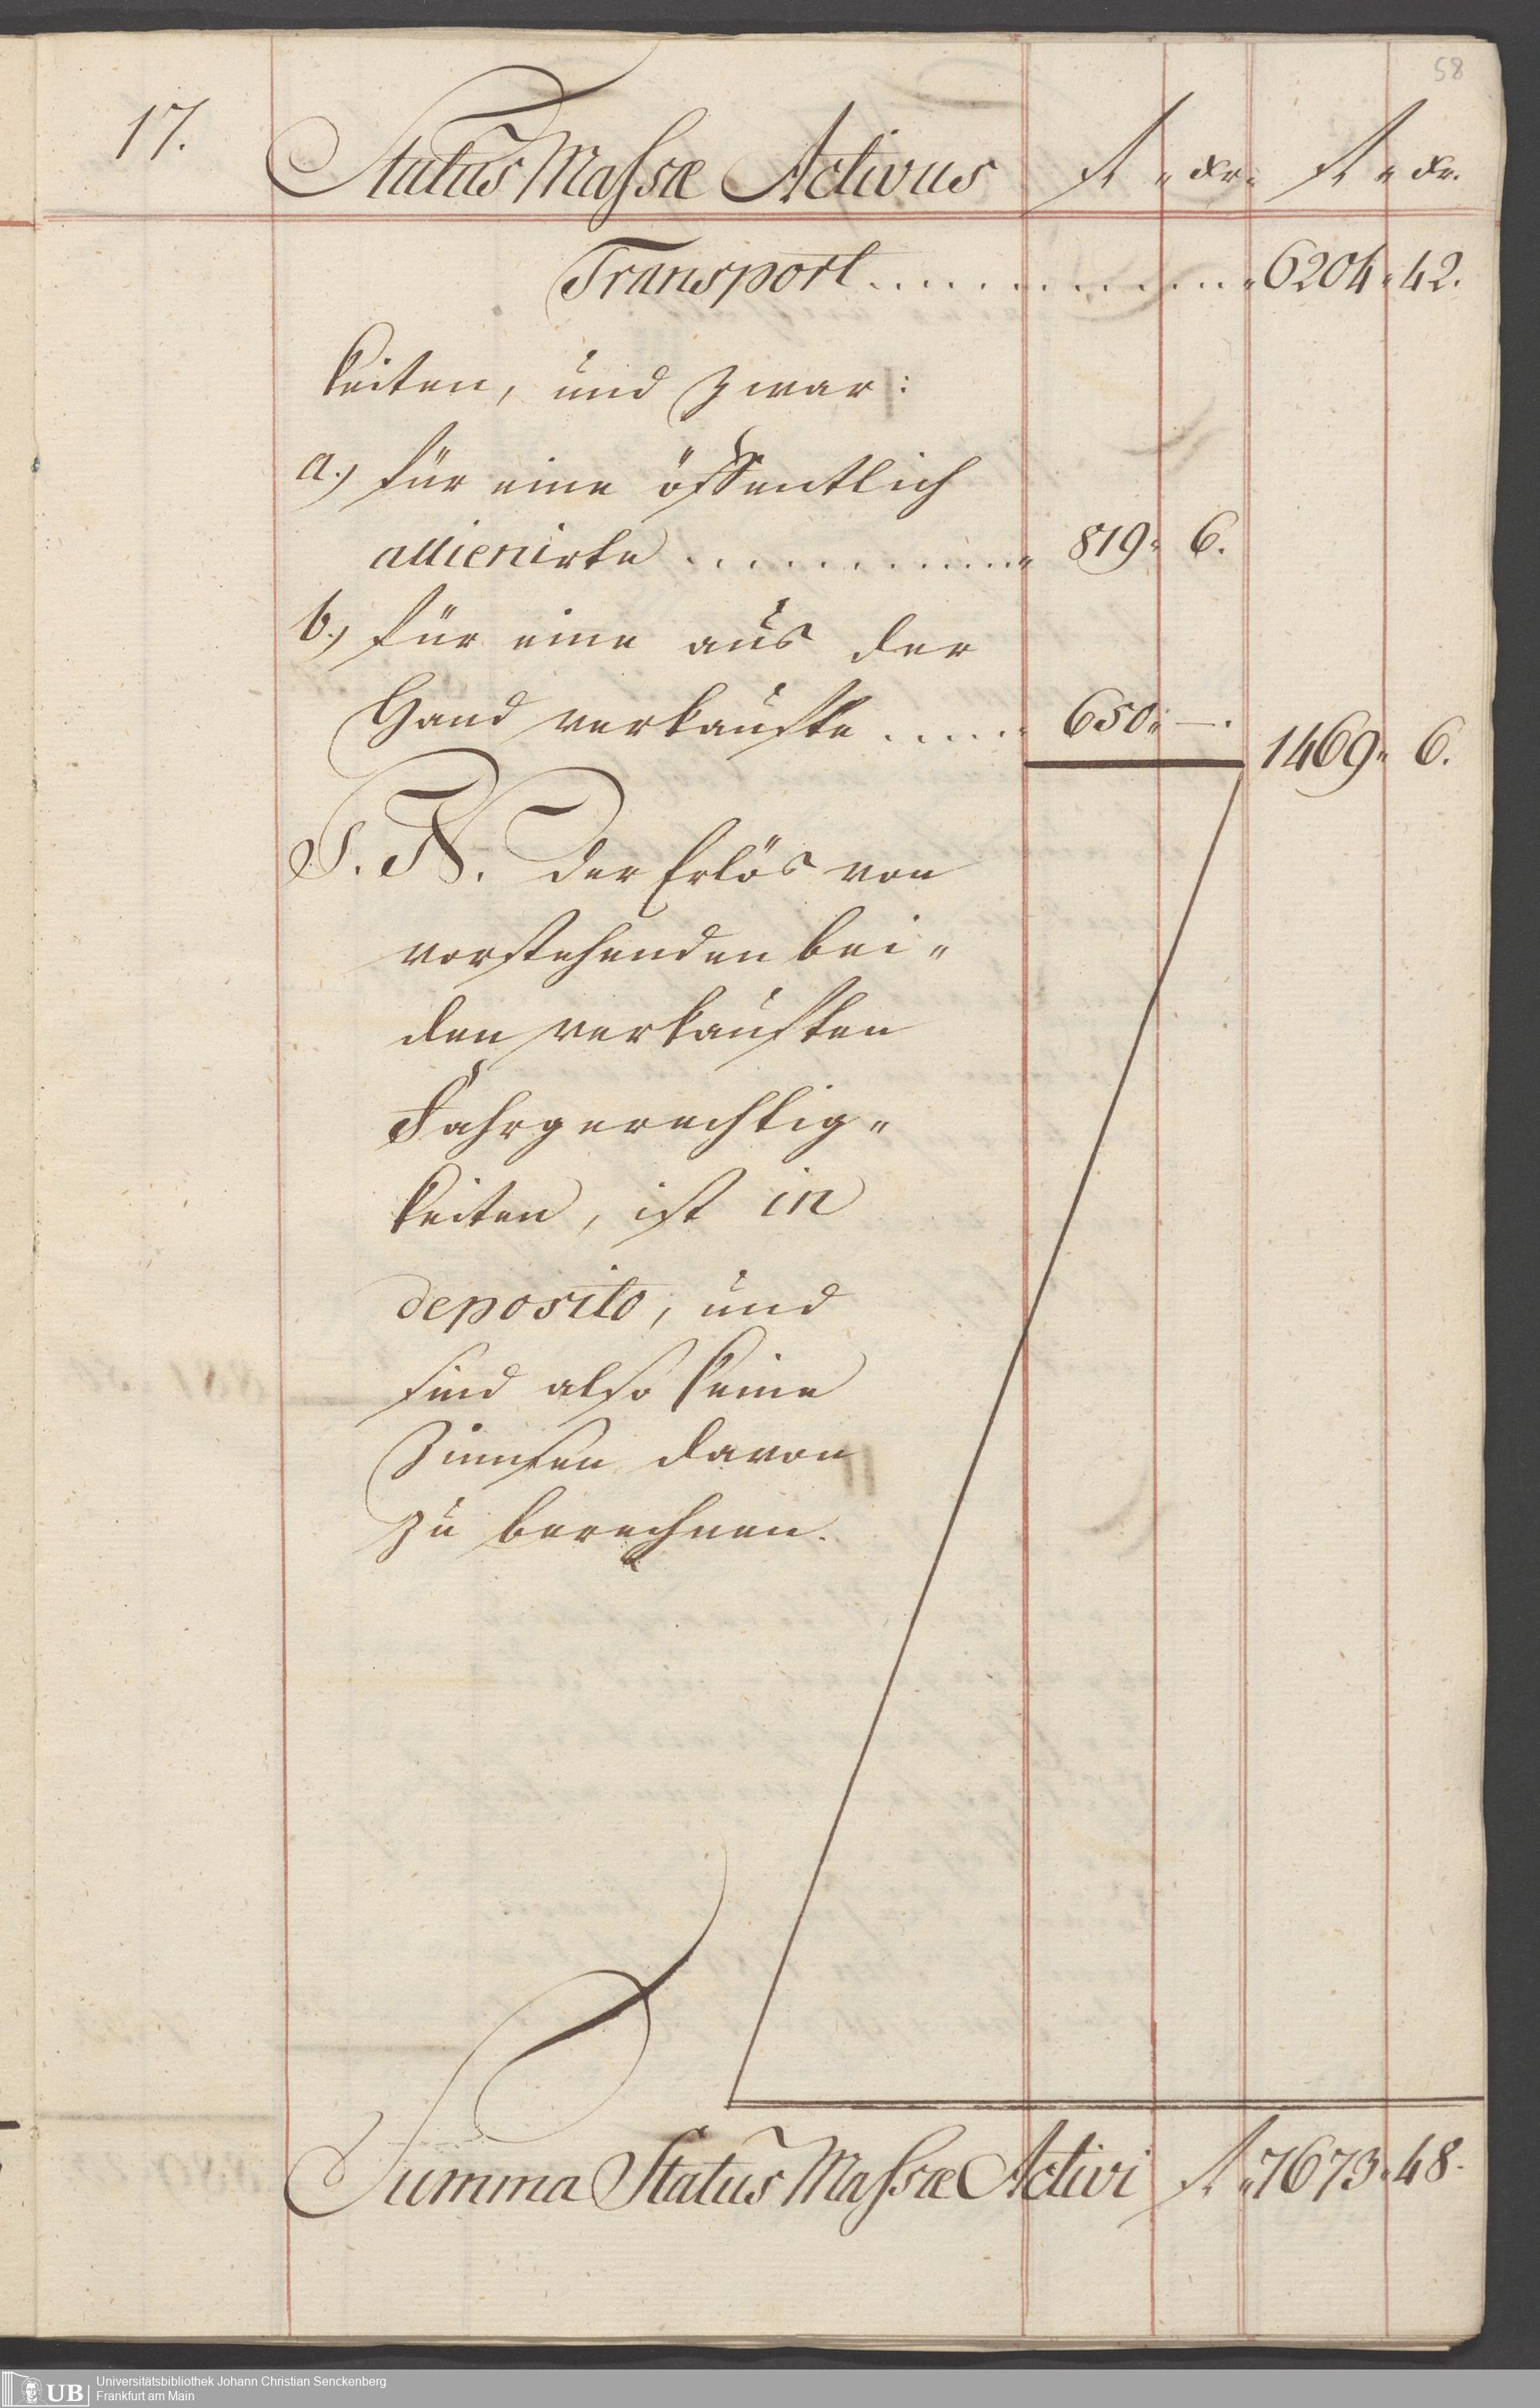 58
17. Status Massæ Activus fl " xr. fl " xr.
Transport . . . . . . . . . . . " 6204 " 42.
keiten, und zwar:
a.) für eine öffentlich
allienirte . . . . . . . . . . . " 819 " 6.
b.) für eine aus der
Hand verkaufte . . . . . " 650 " —.
1469 " 6.
Der Erlös von
vorstehenden bei"
den verkauften
Fahrgerechtig"
keiten, ist in
deposito, und
sind also keine
Zinnsen davon
zu berechnen.
Summa Status Massæ Activi fl " 7673 " 48.
UB Universitätsbibliothek Johann Christian Senckenberg
Frankfurt am Main